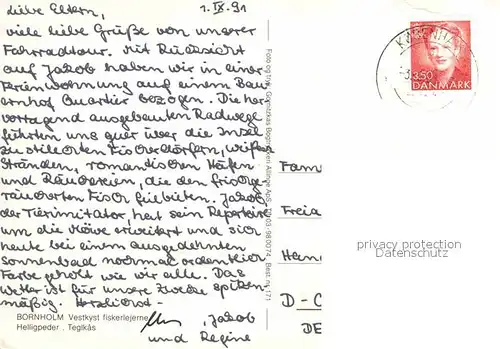 Liebe Eltern, 1.IX.91
viele liebe Grüße von unserer
Fahrradtour. Mit Rücksicht
auf Jakob haben wir in einer
Ferienwohnung auf einem Bau-
ernhof Quartier bezogen. Die her-
vorragend ausgebauten Radwege
führten uns quer über die Insel
zu stillen Fischerdörfern, weißen
Stränden, romantischen Häfen
und Räuchereien, die den frischge-
räucherten Fisch feilbieten. Jakob,
der Tierimitator, hat sein Repertoire
um die Möwe erweitert und sich
heute bei einem ausgedehnten
Sonnenbad nochmal ordentlich
Farbe geholt wie wir alle. Das
Wetter ist für unsere Zwecke spitzen-
mäßig. Herzlichst -
BORNHOLM Vestkyst fiskerlejerne
Helligpeder . Teglkås
, Jakob
und Regine
Foto og tryk: Gornitzkas Boghandel, Allinge ApS
Best. nr. 171
KØBENHAVN
3.50
DANMARK
Fam
Freia
Han
D - C
DE
privacy protection
Datenschutz